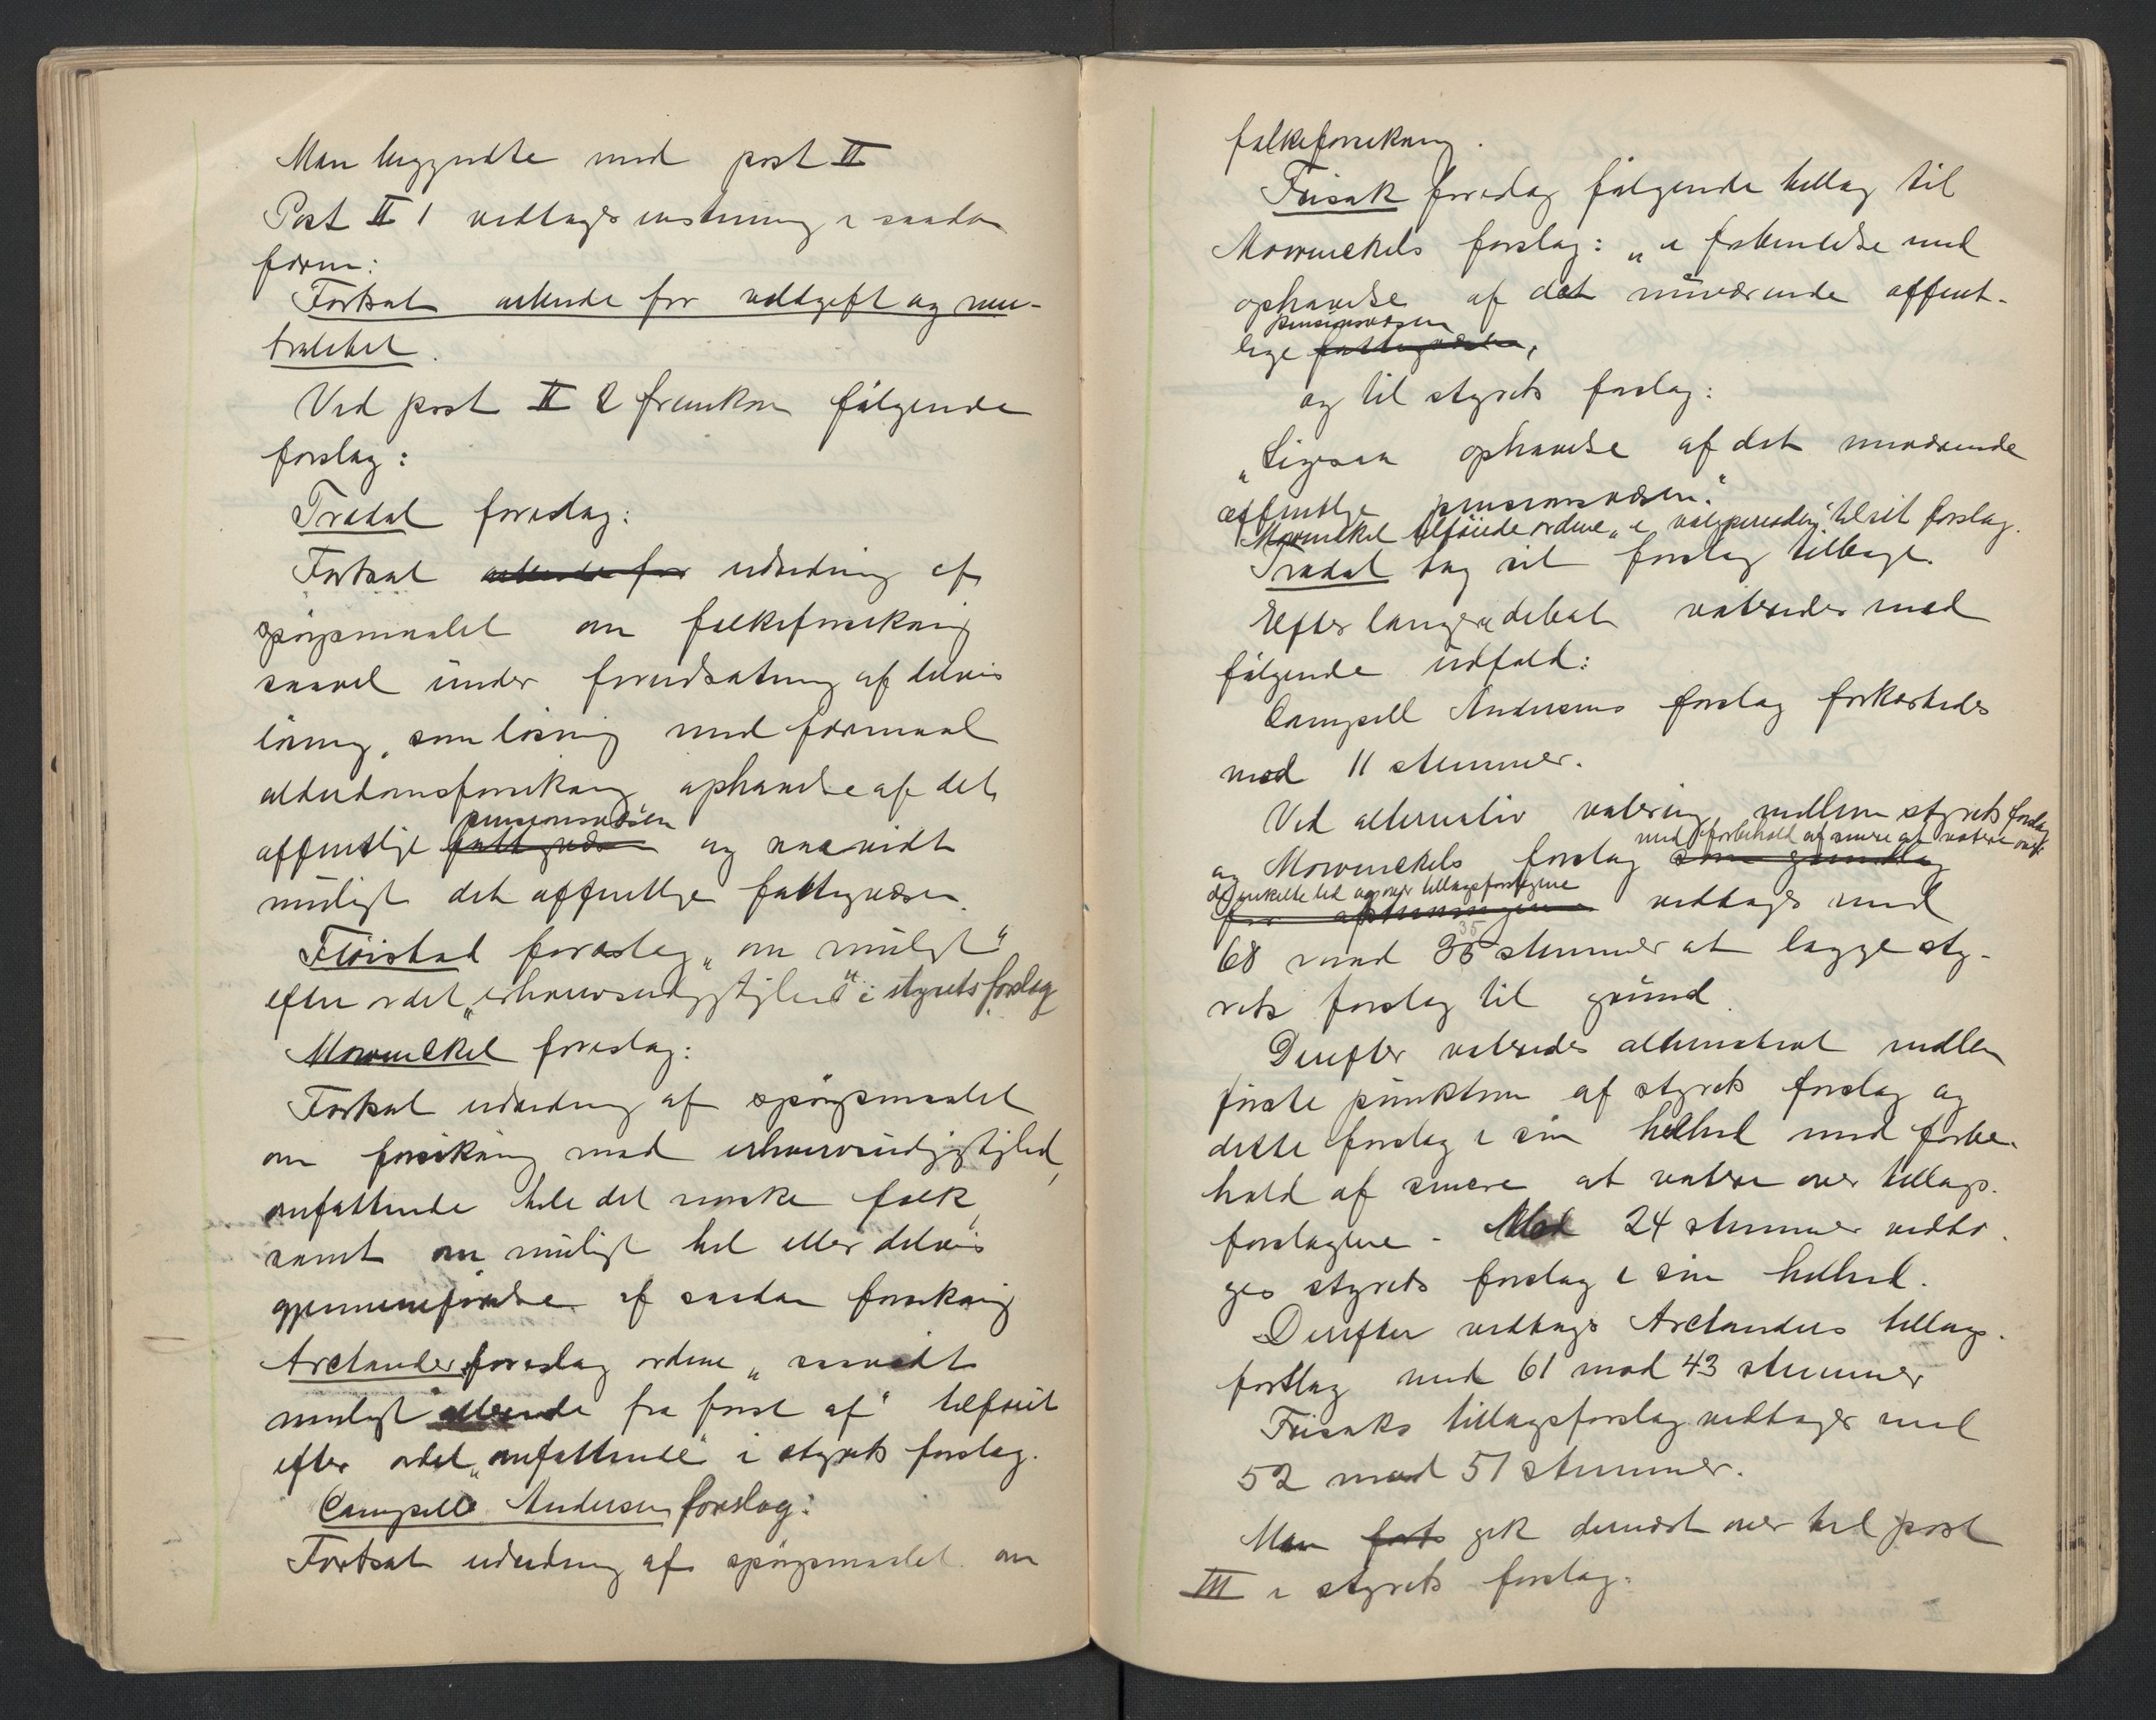 Man begyndte med post II
Post II 1 vedtages enstemmig i saadan
form:
Fortsat arbeide for voldgift og neu-
tralitet.
Ved post II 2 fremkom følgende
forslag:
Tradal foreslog:
Fortsat arbeide for udredning af
spørgsmaalet om folkeforsikring
saavel under forudsætning af delvis
løsning, som løsning med formaal
alderdomsforsikring ophævelse af det
pensionsvæsen
offentlige fattigvæsen og saavidt
muligt det offentlige fattigvæsen.
Fløistad foreslog „om muligt“
efter ordet „erhvervsudygtighed“ i styrets forslag
Mowinckel foreslog:
Fortsat udredning af spørgsmaalet
om forsikring mod erhvervsudygtighed,
omfattende hele det norske folk,
samt om muligt hel eller delvis
gjennemførelse af saadan forsikring
Arctander foreslog ordene „saavidt
muligt allerede fra først af“ tilføiet
efter ordet „omfattende“ i styrets forslag.
Campell Andersen foreslog:
Fortsat udredning af spørgsmaalet om
folkeforsikring.
Friisak foreslog følgende tillæg til
Mowinckels forslag: „i forbindelse med
ophævelse af det nuværende offent-
pensionsvæsen
lige fattigvæsen,
og til styrets forslag:
„Ligesaa ophævelse af det nuværende
offentlige pensionsvæsen.“
Mowinckel tilføiede ordene „i valgperioden“ til sit forslag.
Tradal tog sit forslag tilbage.
Efter længere debat voteredes med
følgende udfald:
Campell Andersens forslag forkastedes
mod 11 stemmer.
Ved alternativ votering mellem styrets forslag
med forbehold af senere at votere over
og Mowinckels forslag som grundlag
de enkelte led og over tillægsforslagene
for afstemningen vedtages med
68 mod 35 stemmer at lægge sty-
rets forslag til grund.
Derefter voteredes alternativt mellem
første punktum af styrets forslag og
dette forslag i sin helhed med forbe-
hold af senere at votere over tillægs-
forslagene. Mod 24 stemmer vedto-
ges styrets forslag i sin helhed.
Derefter vedtoges Arctanders tillægs-
forslag med 61 mod 43 stemmer
Friisaks tillægsforslag vedtages med
52 mod 51 stemmer.
Man forts gik dernæst over til post
III i styrets forslag.